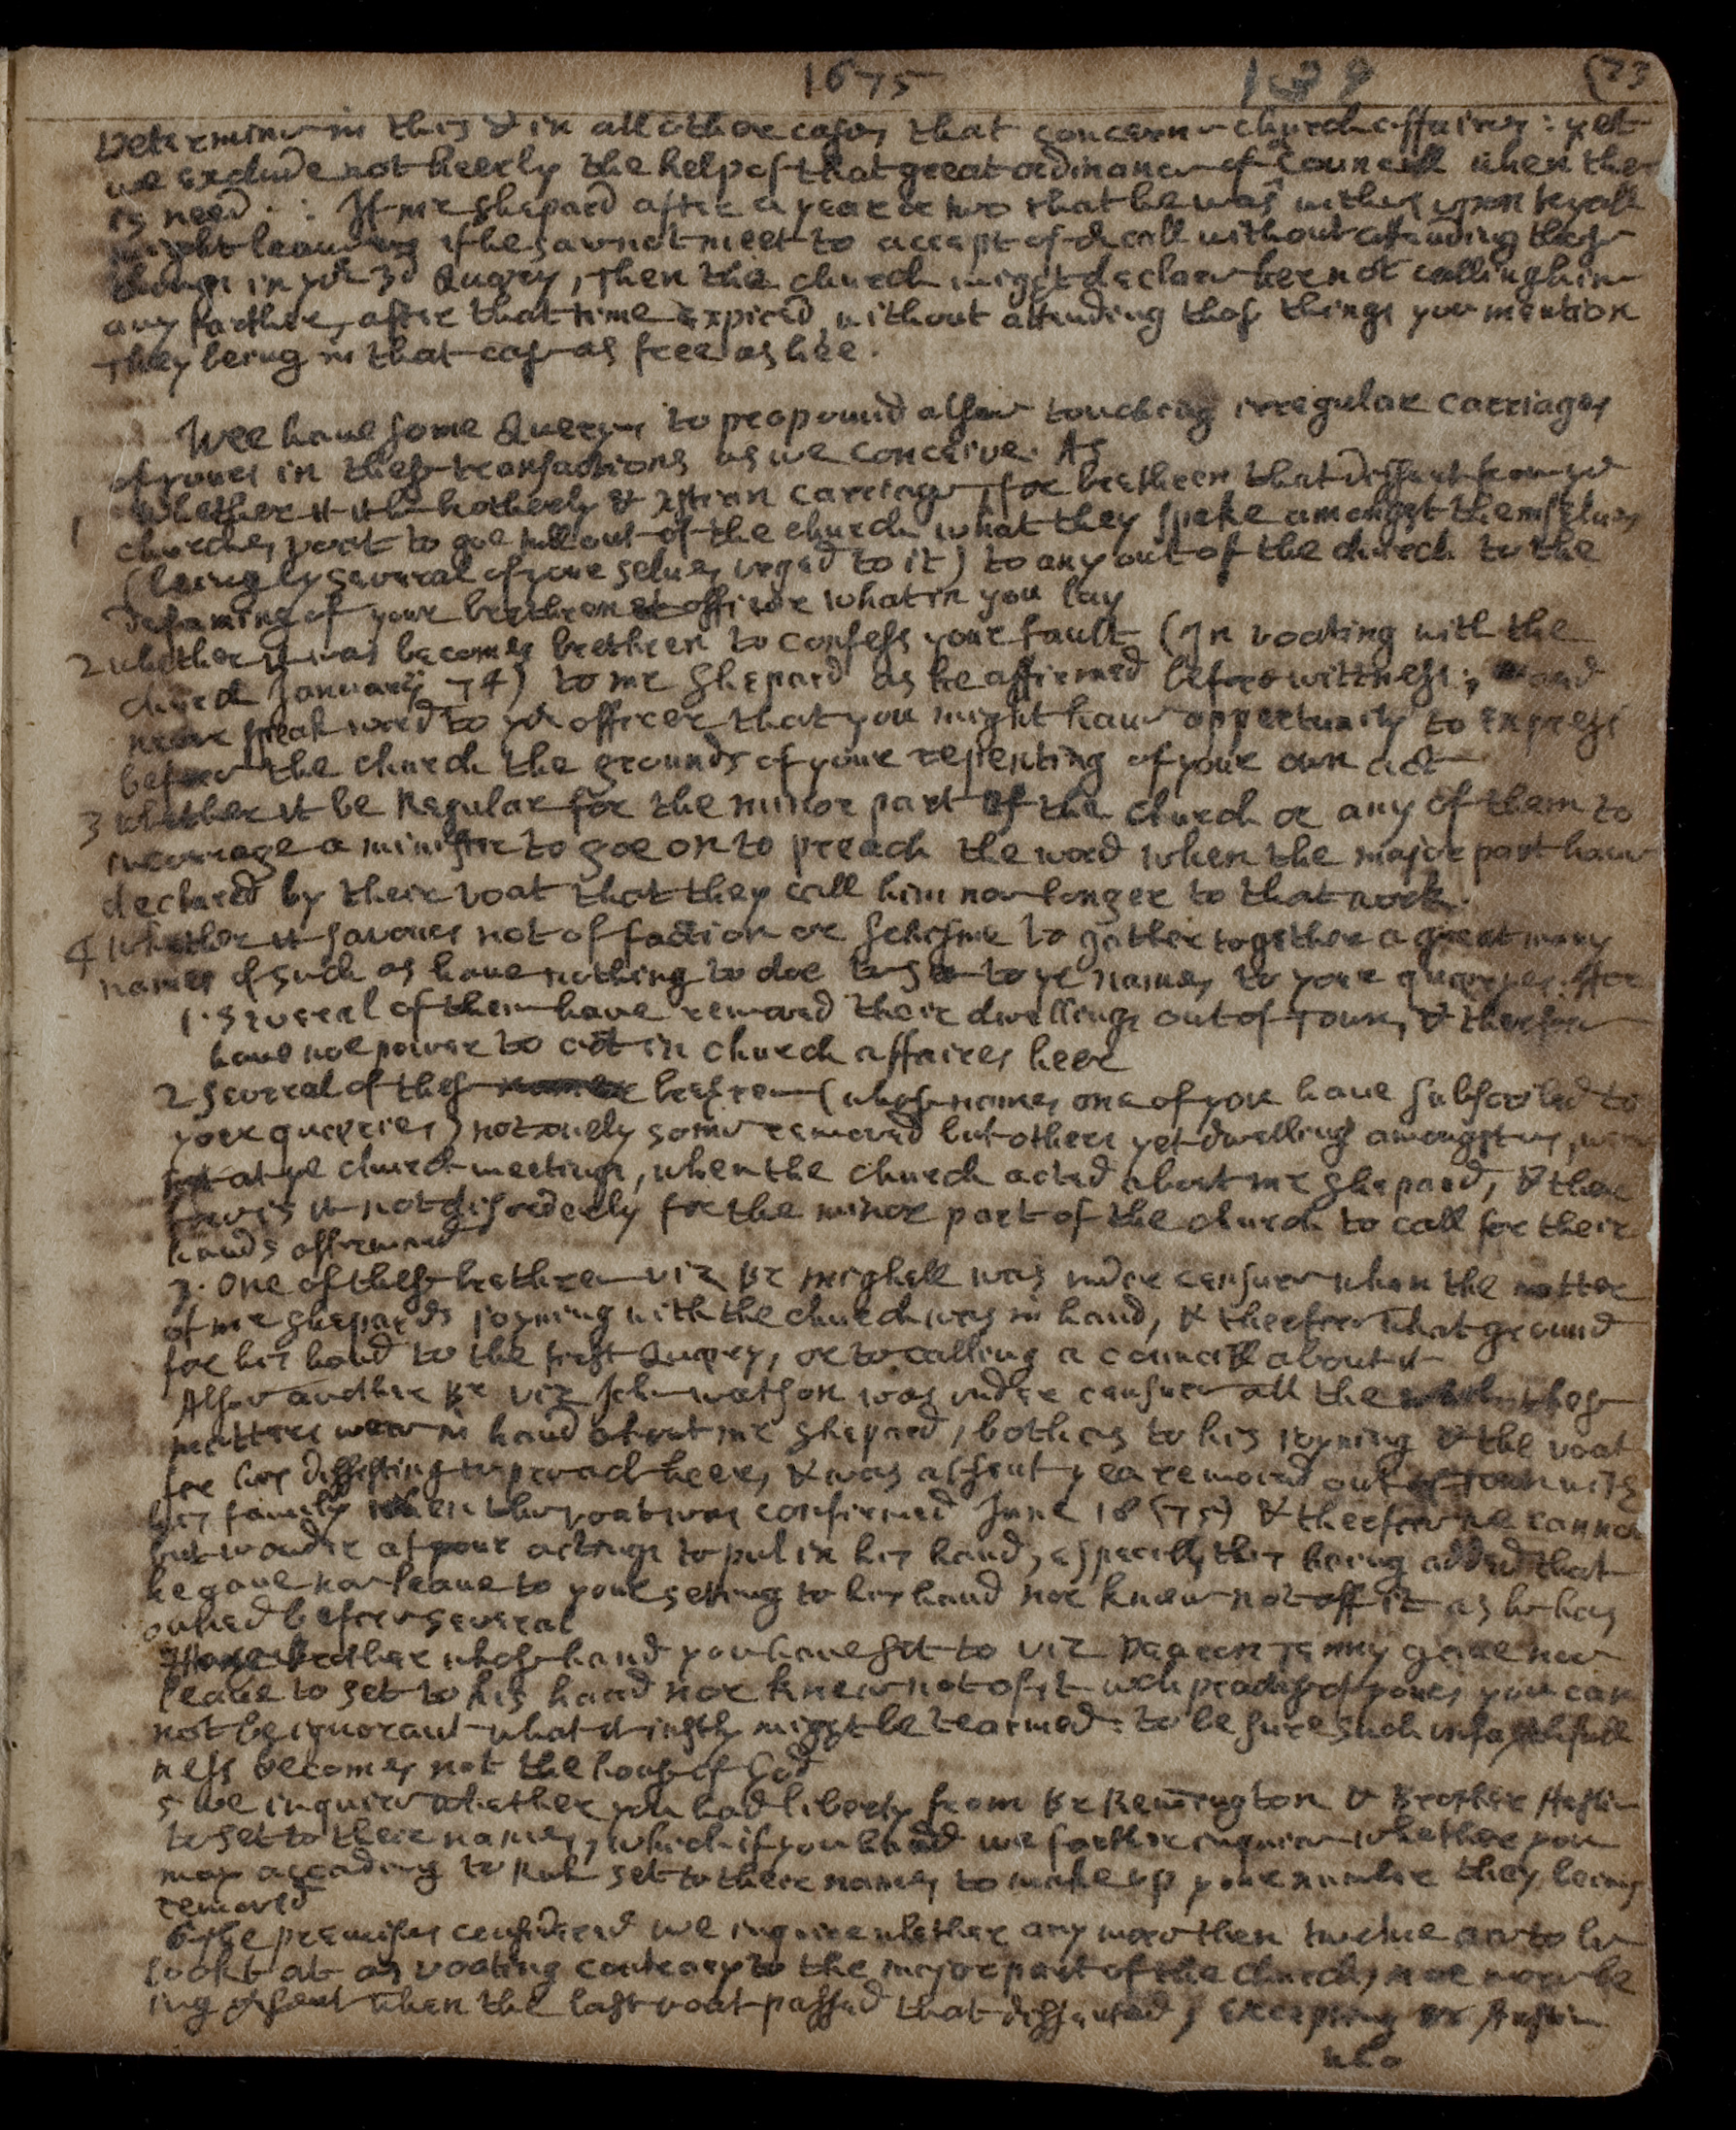 1675 129 (73
Determine in this & in all other cases that concerne church affaires: yet
we exclude not heerly the help of that great ordinance of Councill when ther
is need. : If mr Shepard after a year or two that he was with us upon tryall
might leave us if he saw not meet to accept of a call without attending thes
things in yor 3d Query, Then the church might declare her not calling him
any farther, after that time expired, without attending thos things you mention
They being in that case as free as hee.
Wee have some Querys to propound alsoe touching irregular carriages
of yours in thes transactions as we conceive. As
1 Whether it is brotherly & xstian carriage, for brethren that dissent from ye
churches voat to goe tell out of the church what they speke amongst themselves
(being by several of your selves urged to it) to any out of the church to the
defaming of your brethren & officer what in you lay
2 whether it was becomes brethren to confess your fault (In voating with the
church January 74) to mr Shepard as he affirmed before wittness; and
never speak word to yor officer that you might have oppertunity to express
before the church the grounds of your repenting of your own act
3 whether it be Regular for the minor part of the church or any of them to
incourage a minister to goe on to preach the word when the major part have
declared by their voat that they call him noe longer to that work.
4 Whether it savours not of faction or schisme to gather together a great many
names of such as have nothing to doe to set to ye names to your quaryes. For
1. Several of them have removed their dwellings out of Town, & therfore
have noe power to act in church affaires heer
2 Several of thes names brethren (whose names one of you have subscribed to
your quaeries) not onely some removed but others yet dwelling amongst us, were
not at ye church meetings, when the church acted about mr Shepard, & ther
fore is it not disorderly for the minor part of the church to call for their
hands afterward
3. One of thes brethren viz Br mighell was under censure when the matter
of mr Shepards joyning with the church was in hand, & therfore what ground
for his hand to the first Query, or to calling a councill about it
Also another Br viz John watson was under censure all the while thes
matters were in hand about mr Shepard, both as to his joyning & the voat
for his desisting to preach heer, & was absent yea removed out of Town with
his family when the voat was confirmed June 18 (75) & therfore we cannot
but wonder at your actings to put in his hand, especially this being added that
he gave noe leave to your seting to his hand nor knew not off it as he has
owned before several
brother whose hand you have set to viz Deacon Jemmy gave noe
leave to set to his hand nor knew not of it wch practise of yours you can
not be ignorant what it justly might be tearmed: to be sure such unfaithfull
ness becomes not the house of God
5 We inquire whether you had liberty from Br Remington & Brother Austin
to set to their names, which if you had we farther inquire whether you
may according to Rule set to there names to make up your number they being
removed
6 The premises considered we inquire whether any more then twelve are to be
lookt at as voating contrary to the major part of the church, noe more be
ing present when the last voat passed that dissented, Excepting Br Austin
who